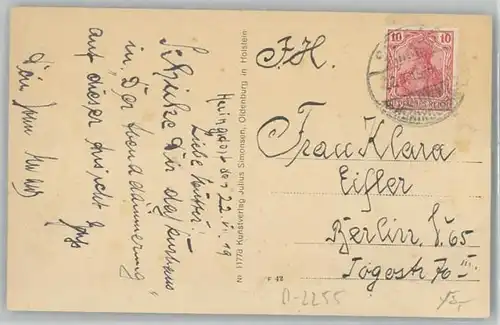 Heringsdorf den 22.VI.19
Liebe Mutti!
Schicke Dir das Kurhaus
in Der Abenddämmerung
auf dieser Ansicht
Dein
Nr 11778 Kunstverlag Julius Simonsen, Oldenburg in Holstein
F. H.
10 10
DEUTSCHES REICH
Frau Klara
Eifler
Berlin
65
Togostr 70
F 42
D-2255